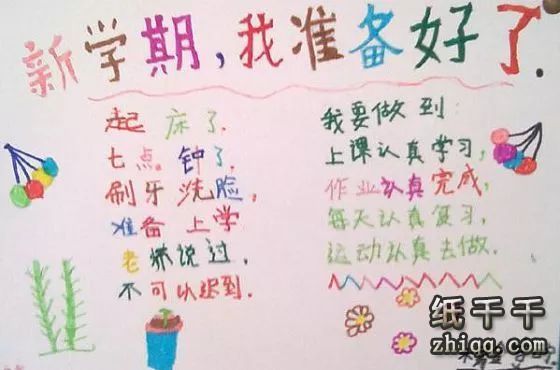 新学期,我准备好了.
起床了.
七点钟了.
刷牙洗脸,
准备上学
老师说过,
不可以迟到.
我要做到:
上课认真学习,
作业认真完成,
每天认真复习,
运动认真去做.
纸千千
zhiqq.com